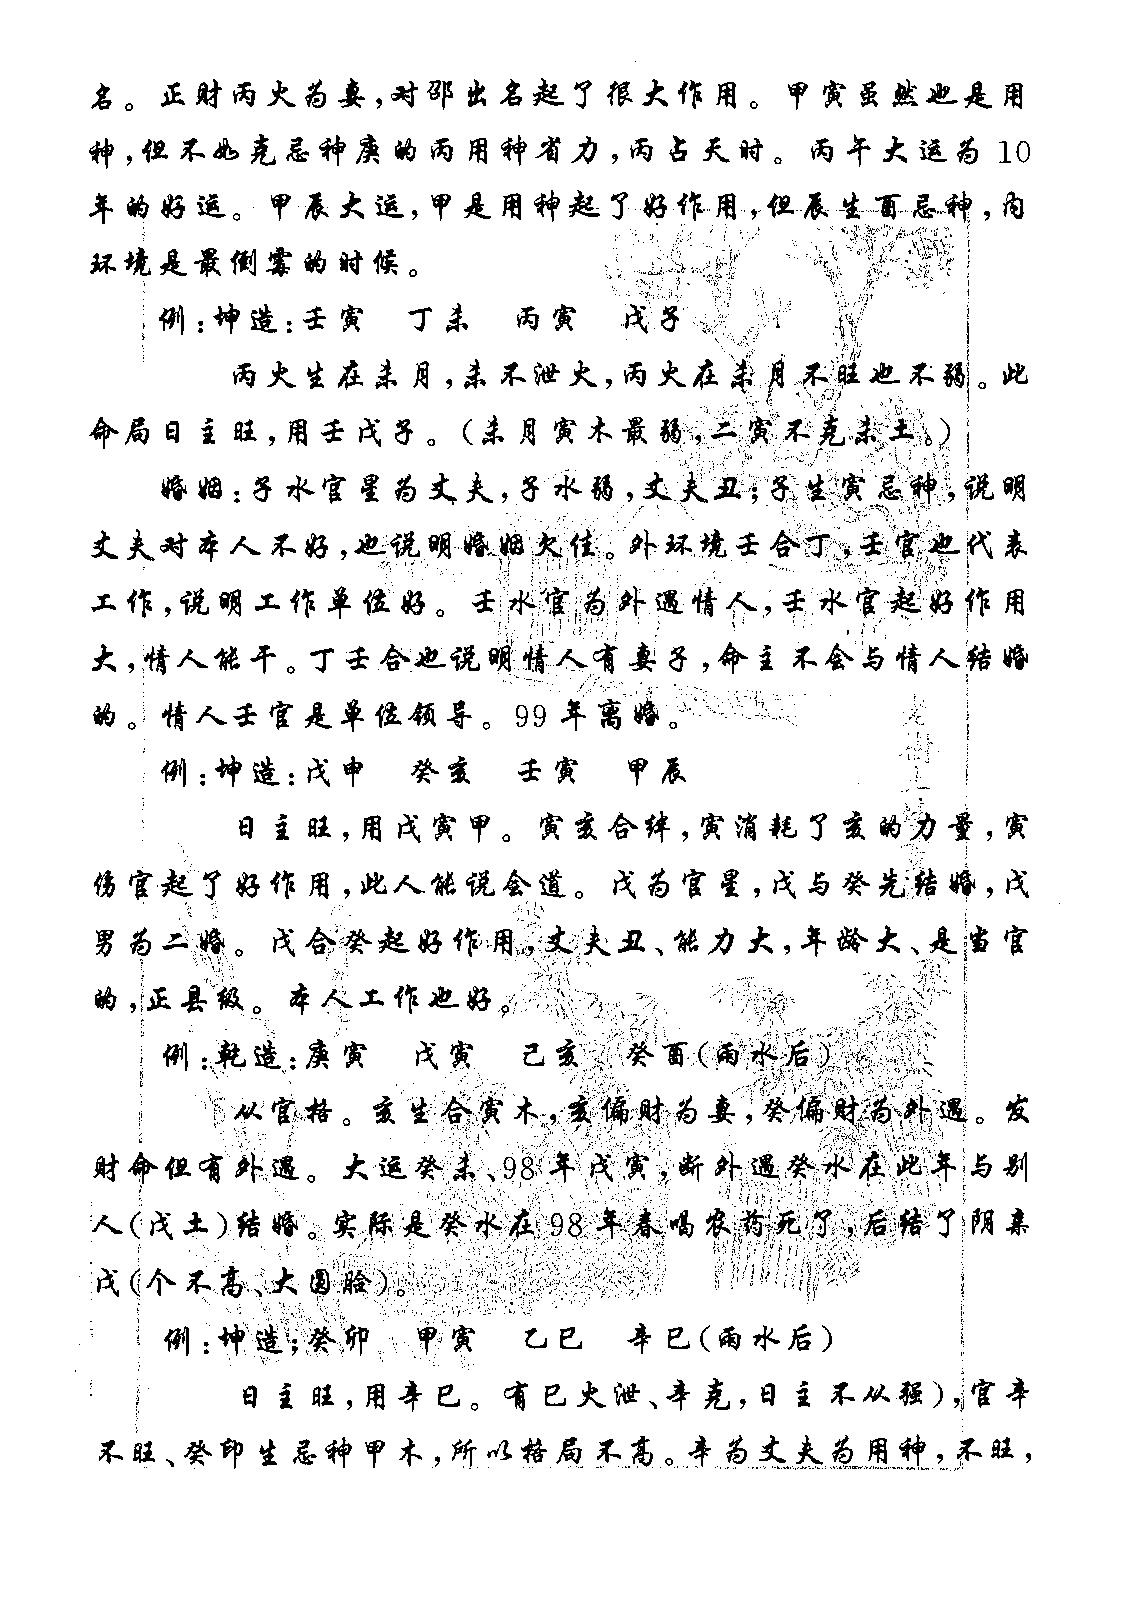 名。正财丙火为妻，对邵出名起了很大作用。甲寅虽然也是用
神，但不如克忌神庚的丙用神省力，丙占天时。丙午大运为10
年的好运。甲辰大运，甲是用神起了好作用，但辰生酉忌神，内
环境是最倒霉的时候。
例：坤造：壬寅 丁未 丙寅 戊子
丙火生在未月，未不泄火，丙火在未月不旺也不弱。此
命局日主旺，用壬戊子。（未月寅木最弱，二寅不克未土。）
婚姻：子水官星为丈夫，子水弱，丈夫丑；子生寅忌神，说明
丈夫对本人不好，也说明婚姻欠佳。外环境壬合丁，壬官也代表
工作，说明工作单位好。壬水官为外遇情人，壬水官起好作用
大，情人能干。丁壬合也说明情人有妻子，命主不会与情人结婚
的。情人壬官是单位领导。99年离婚。
例：坤造：戊申 癸亥 壬寅 甲辰
日主旺，用戊寅甲。寅亥合绊，寅消耗了亥的力量，寅
伤官起了好作用，此人能说会道。戊为官星，戊与癸先结婚，戊
男为二婚。戊合癸起好作用，丈夫丑、能力大，年龄大、是当官
的，正县级。本人工作也好。
例：乾造：庚寅 戊寅 己亥 癸酉（雨水后）
从官格。亥生合寅木，亥偏财为妻，癸偏财为外遇。发
财命但有外遇。大运癸未、98年戊寅，断外遇癸水在此年与别
人（戊土）结婚。实际是癸水在98年春喝农药死了，后结了阴亲
戊（个不高、大圆脸）。
例：坤造；癸卯 甲寅 乙巳 辛巳（雨水后）
日主旺，用辛巳。有巳火泄、辛克，日主不从强），官辛
不旺、癸印生忌神甲木，所以格局不高。辛为丈夫为用神，不旺，